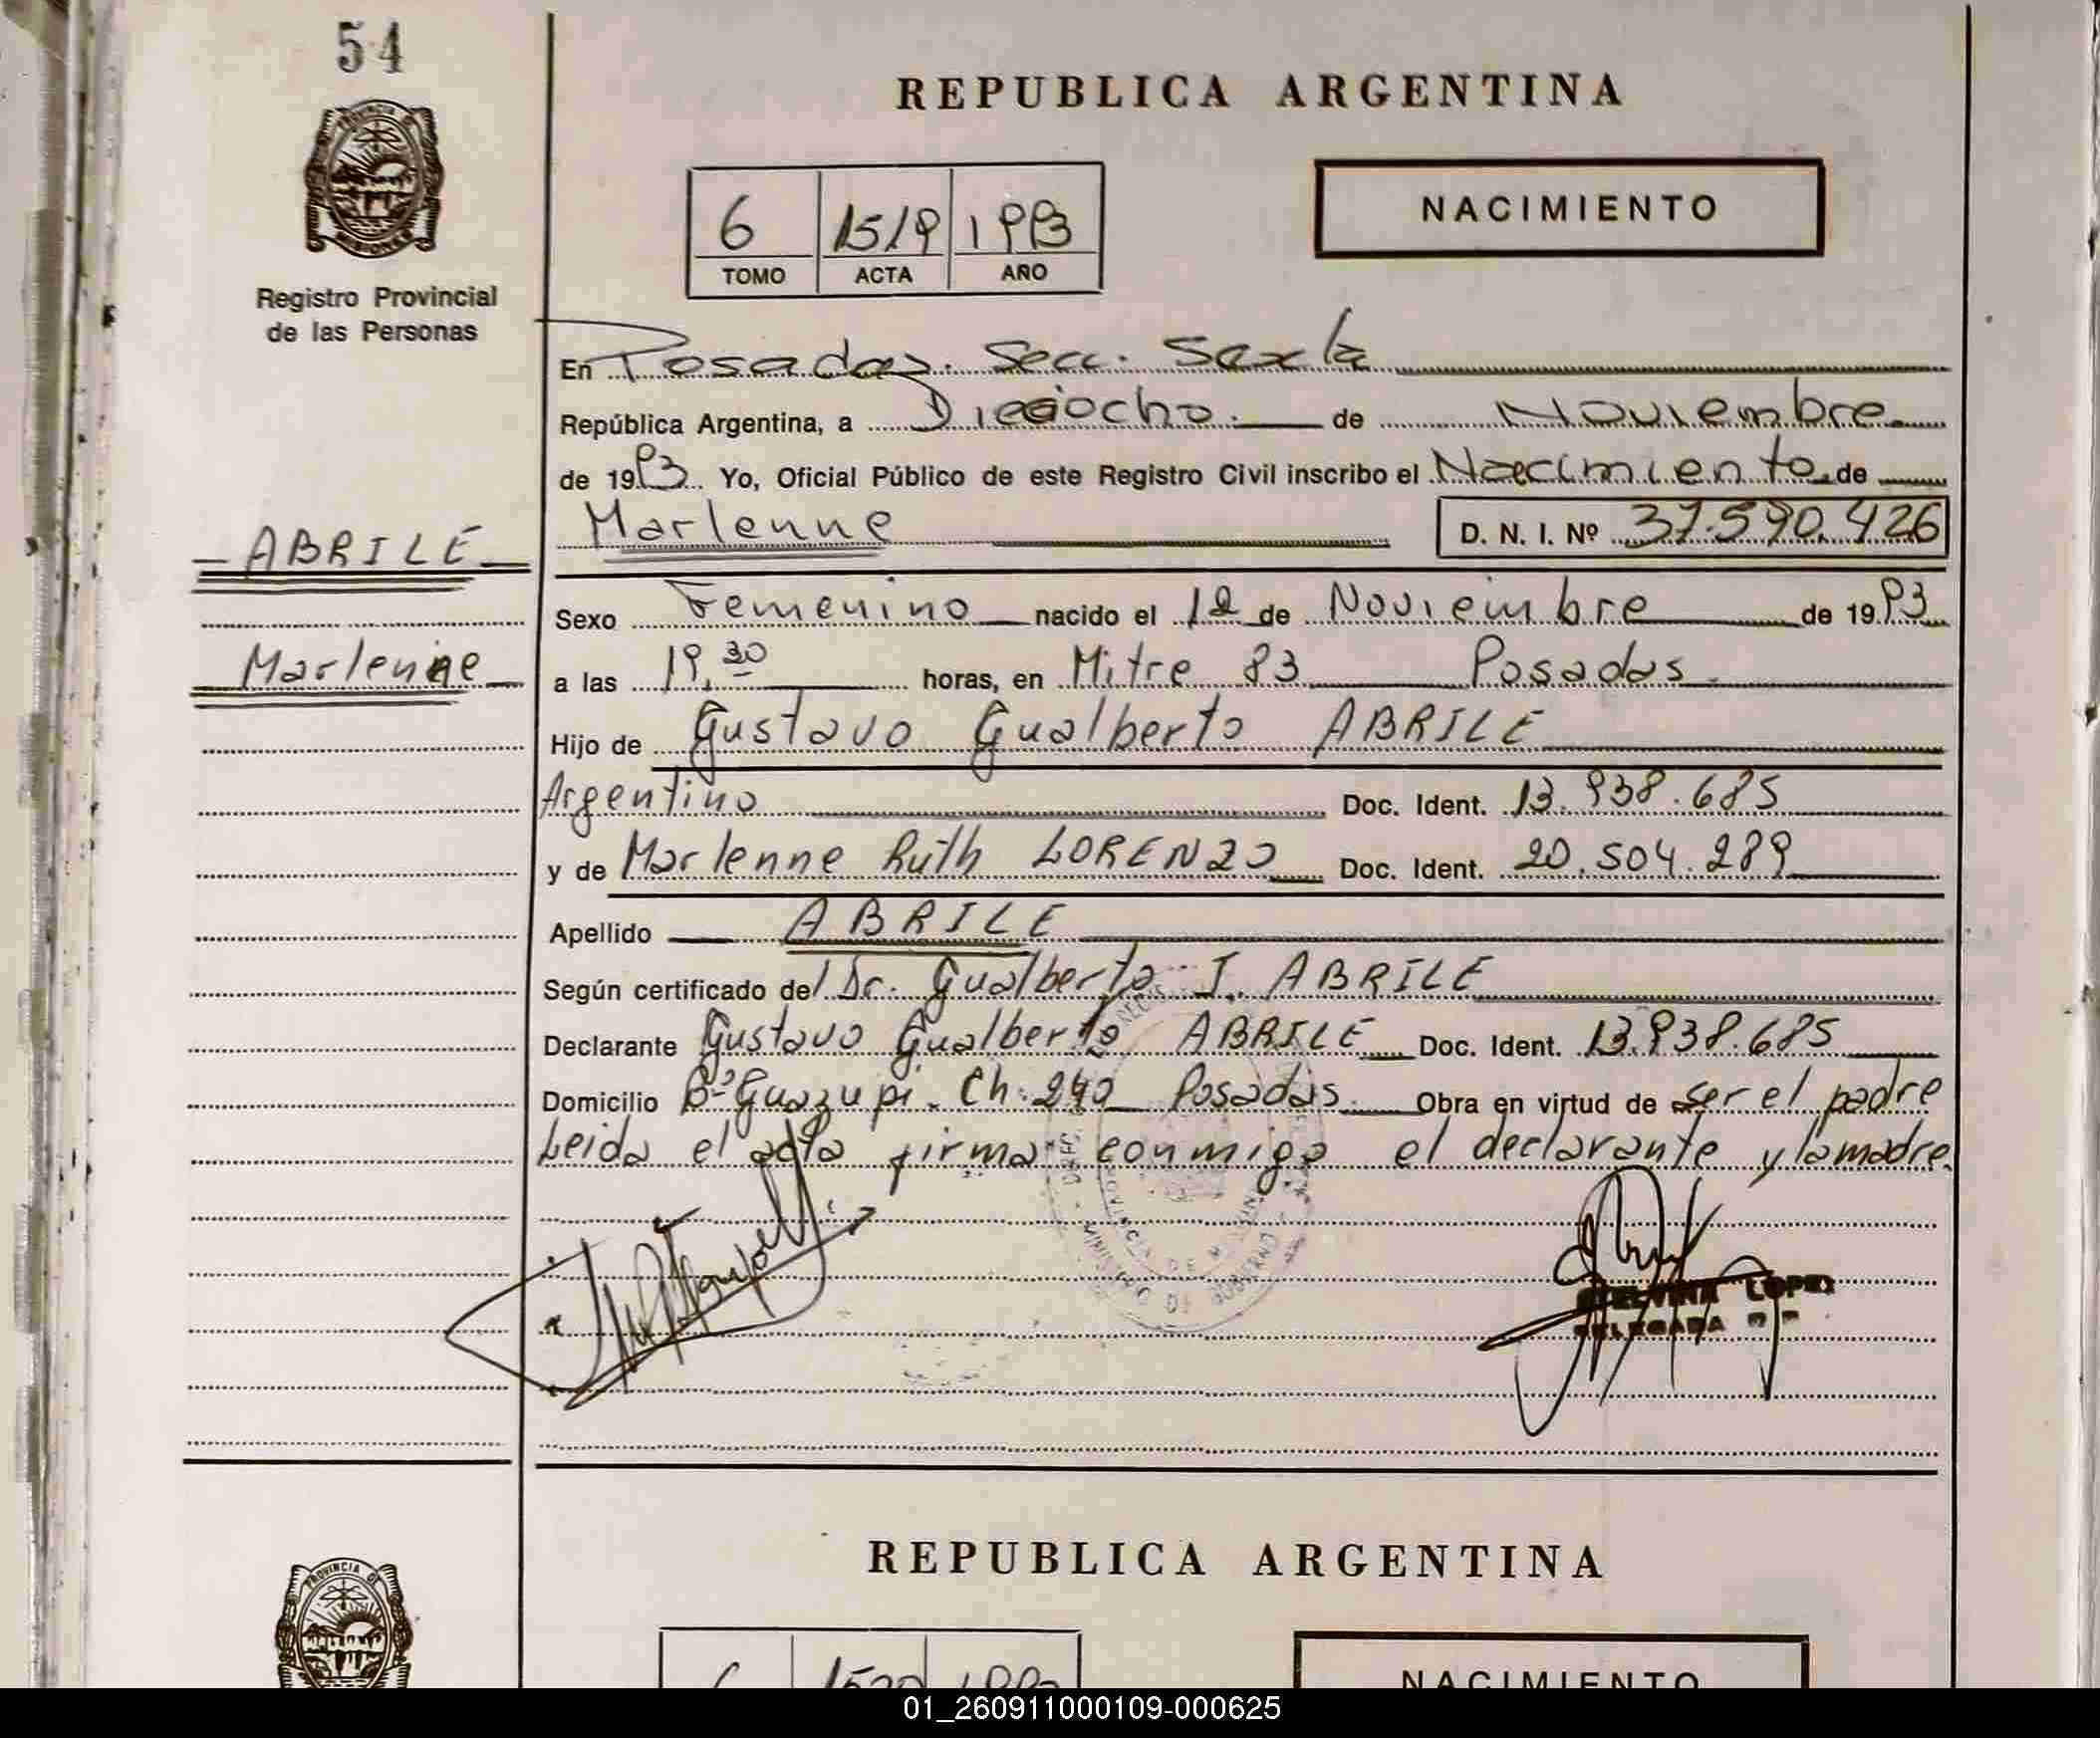 54
REPUBLICA ARGENTINA
PROVINCIA DE MISIONES
Registro Provincial
de las Personas
6 1519 1993
TOMO ACTA AÑO
NACIMIENTO
En Posadas. Secc. Sexta
República Argentina, a Dieciocho. de Noviembre
de 1993 Yo, Oficial Público de este Registro Civil inscribo el Nacimiento de
Marlenne D. N. I. Nº 37.590.426
ABRILE
Marlenne
Sexo Femenino nacido el 12 de Noviembre de 1993
a las 19,30 horas, en Mitre 83 Posadas.
Hijo de Gustavo Gualberto ABRILE
Argentino Doc. Ident. 13.938.685
y de Marlenne Ruth LORENZO Doc. Ident. 20.504.289
Apellido ABRILE
Según certificado del Dr. Gualberto J. ABRILE
Declarante Gustavo Gualberto ABRILE Doc. Ident. 13.938.685
Domicilio Bº Guazupi. Ch. 240 Posadas. Obra en virtud de ser el padre
Leida el acta firma conmigo el declarante y la madre.
LOPEZ
DELEGADA
REPUBLICA ARGENTINA
PROVINCIA DE
6 1520 1993
NACIMIENTO
01_260911000109-000625